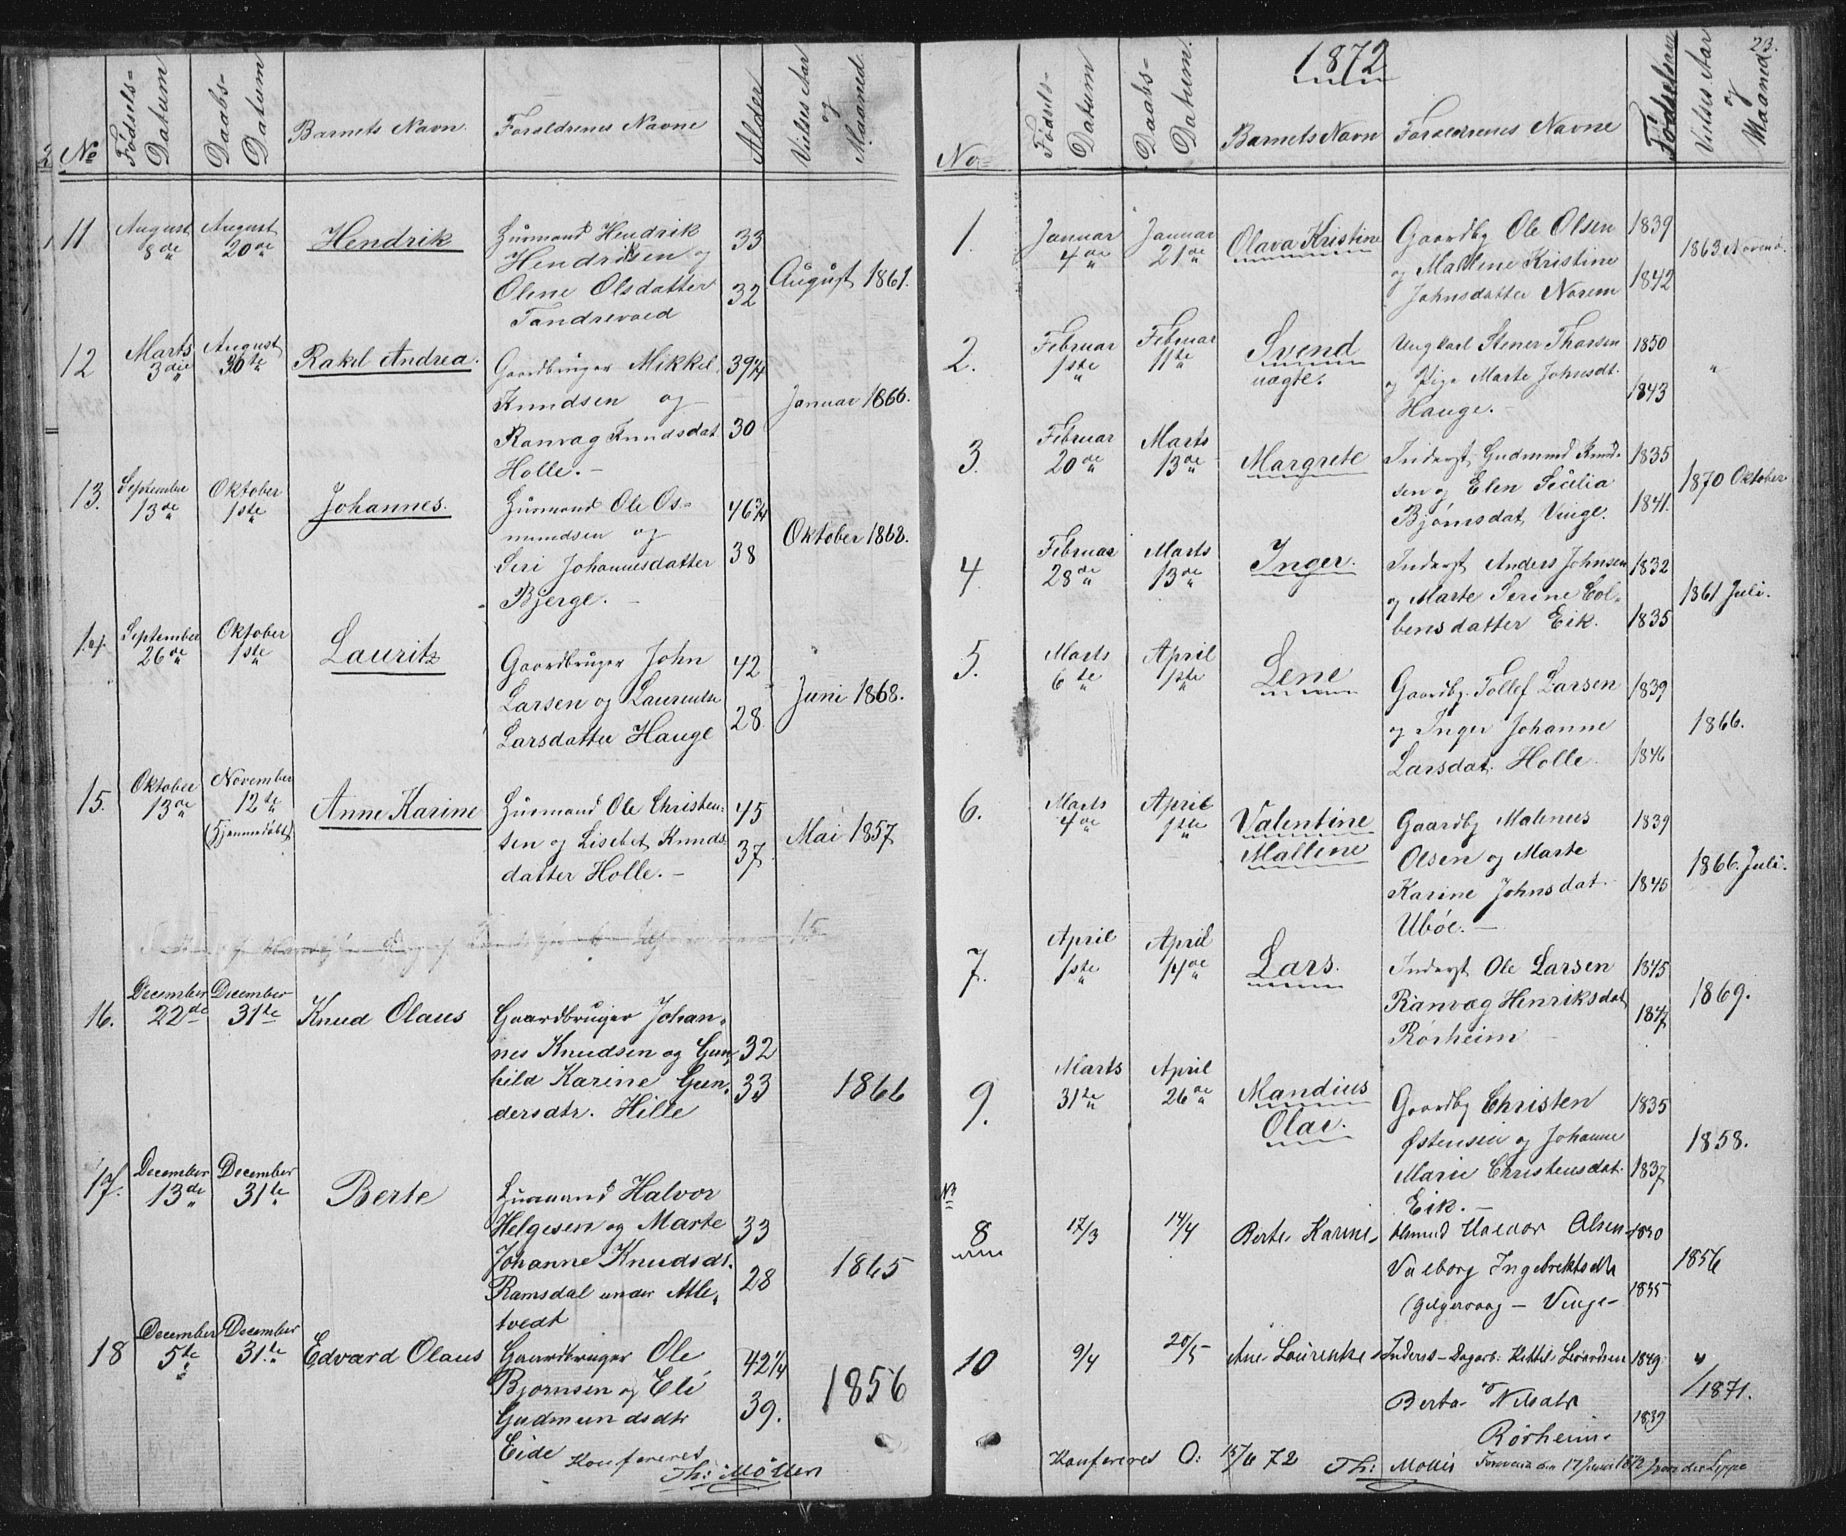 No
Fødsels-
Datum
Daabs-
Datum
Barnets Navn.
Forældrenes Navne
Alder
Vielses Aar
og
Maaned.
11
August
8de
August
20de
Hendrik
Husmand Hendrik
Hendriksen og
Olene Olsdatter
Tandrevold
33
32
August 1861.
12
Marts
3die
August
30te
Rakel Andrea.
Gaardbruger Mikkel
Knudsen og
Ranvag Knudsdat
Holle. -
39 1/4
30
Januar 1866.
13.
September
13de
Oktober
1ste
Johannes.
Husmand Ole Os-
mundsen og
Seri Johannesdatter
Bjerge. -
46 3/4
38
Oktober 1868.
14.
September
26de
Oktober
1ste
Lauritz
Gaardbruger John
Larsen og Laurentse
Larsdatter Hauge
42
28
Juni 1868.
15.
Oktober
13de
November
12te
(Hjemmedøbt)
Anne Karine
Husmand Ole Christen-
sen og Lisebet Knuds
datter Holle. -
45
37.
Mai 1857
16.
December
22de
December
31te
Knud Olaus
Gaardbruger Johan-
nes Knudsen og Gun-
hild Karine Gun-
dersdtr. Hille
32
33
1866
17.
December
13de
December
31te
Berte
Husmand Halvor
Helgesen og Marte
Johanne Knudsdt.
Ramsdal under Atle-
tvedt
33
28
1865
18
December
5te
December
31te
Edvard Olaus
Gaardbruger Ole
Bjørnsen og Eli
Gudmundsdtr
Eide
42 1/4
39.
1856
Konfereres
Th: Møller
1872
23.
No
Fødsels-
Datum
Daabs-
Datum.
Barnets Navn
Forældrenes Navne
Fødselsaar
Vielses Aar
og
Maaned
1.
Januar
4de
Januar
21de
Olava Kristine
Gaardbg Ole Olsen
og Mallene Kristine
Johnsdatter Norem
1839
1842
1863 Novemb.
2.
Februar
1ste
Februar
11te
Svend
uægte.
Ungkarl Stener Tharsen
og Pige Marte Johnsdt.
Hauge. -
1850
1843
"
3.
Februar
20de
Marts
13de
Margrete
Inderst Gudmund Knud-
sen og Elen Secilia
Bjørnsdat. Vinge.
1835
1841.
1870 Oktober
4.
Februar
28de
Marts
13de
Inger.
Inderst Anders Johnsen
og Marte Serine Col-
bensdatter Eik.
1832
1835
1861 Juli.
5.
Marts
6te
April
1ste
Lene
Gaardbg. Tollef Larsen
og Inger Johanne
Larsdat. Holle.
1839
1846
1866.
6.
Marts
4de
April
1ste
Valentine
Mallene
Gaardbg Malenus
Olsen og Marte
Karine Johnsdat.
Ubøe. -
1839
1845
1866. Juli.
7.
April
1ste
April
14de
Lars.
Inderst Ole Larsen
Ranvag Henriksdat
Rørheim -
1845
1847
1869.
9.
Marts
31te
April
26de
Mandius
Olai.
Gaardbg Christen
Østensen og Johanne
Marie Christensdat.
Eik. -
1835
1837
1858.
No
8
17/3
14/4
Berte Karine,
Husmd Halvor Olsen
Valborg Ingebrektsdtr
Gilgersvaag - Vinge -
1830
1835
1856
10
9/4
20/5
Ane Laurentse
Inderst - Dagarb: Kittil Sivardsen
og
Berta Nilsdtr
Rørheim.
1849.
1839
1871.
Konfereres O: 15/6 72 Th: Møller
Foreviist den 17 Juni 1872 von der Lippe